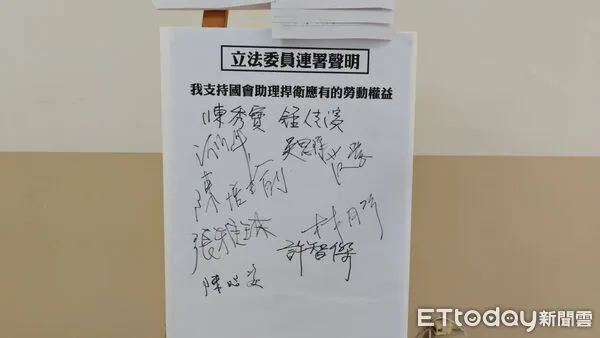 立法委員連署聲明
我支持國會助理捍衛應有的勞動權益
陳秀寳 鍾佳濱
吳思瑤
陳培瑜
張雅琳 林月琴
許智傑
陳
ETtoday新聞雲